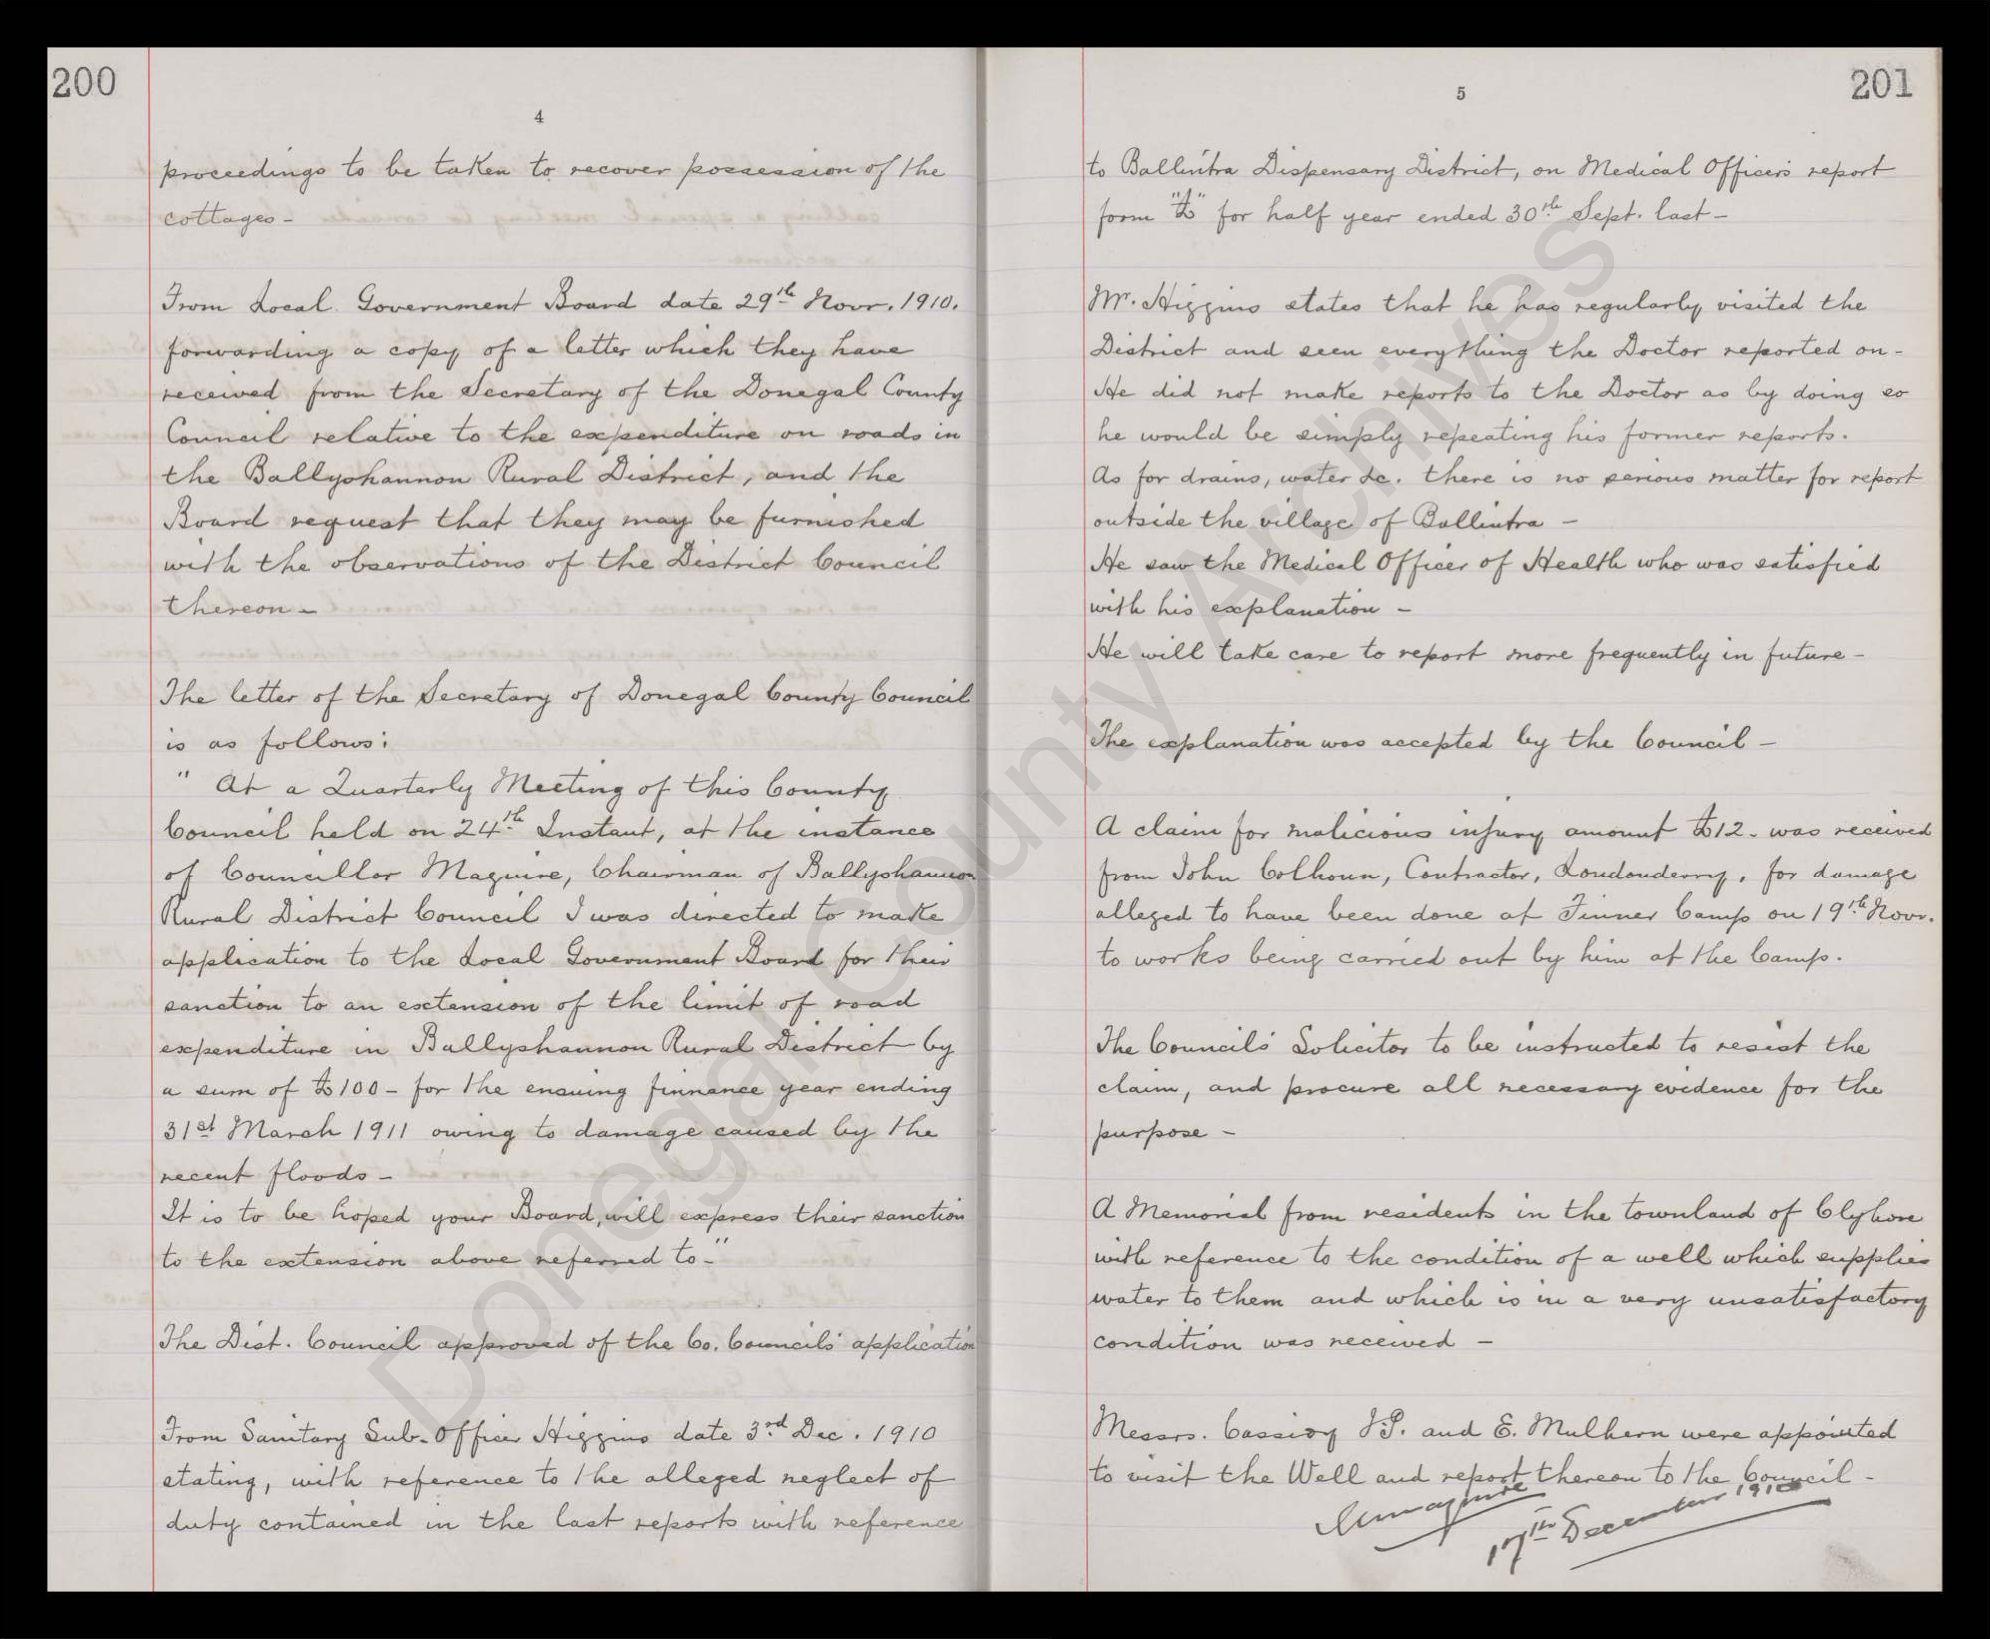 200
4
proceedings to be taken to recover possession of the
cottages –
From Local Government Board date 29th Novr. 1910.
forwarding a copy of a letter which they have
received from the Secretary of the Donegal County
Council relative to the expenditure on roads in
the Ballyshannon Rural District, and the
Board request that they may be furnished
with the observations of the District Council
thereon –
The letter of the Secretary of Donegal County Council
is as follows:
" At a Quarterly Meeting of this County
Council held on 24th Instant, at the instance
of Councillor Maguire, Chairman of Ballyshannon
Rural District Council I was directed to make
application to the Local Government Board for their
sanction to an extension of the limit of road
expenditure in Ballyshannon Rural District by
a sum of £100 – for the ensuing finnance year ending
31st March 1911 owing to damage caused by the
recent floods –
It is to be hoped your Board, will express their sanction
to the extension above referred to –"
The Dist. Council approved of the Co. Councils' application
From Sanitary Sub-Officer Higgins date 3rd Dec. 1910
stating, with reference to the alleged neglect of
duty contained in the last reports with reference
201
5
to Ballintra Dispensary District, on Medical Officers report
form for half year ended 30th Sept. last –
Mr. Higgins states that he has regularly visited the
District and seen everything the Doctor reported on –
He did not make reports to the Doctor as by doing so
he would be simply repeating his former reports.
As for drains, water &c. there is no serious matter for report
outside the village of Ballintra –
He saw the Medical Officer of Health who was satisfied
with his explanation –
He will take care to report more frequently in future –
The explanation was accepted by the Council –
A claim for malicious injury amount £12 – was received
from John Colhoun, Contractor, Londonderry, for damage
alleged to have been done at Finner Camp on 19th Novr.
to works being carried out by him at the Camp.
The Councils' Solicitor to be instructed to resist the
claim, and procure all necessary evidence for the
purpose –
A Memorial from residents in the townland of Clyhore
with reference to the condition of a well which supplies
water to them and which is in a very unsatisfactory
condition was received –
Messrs. Cassidy J.P. and E. Mulhern were appointed
to visit the Well and report thereon to the Council –
17th December 1910
Donegal County Archives